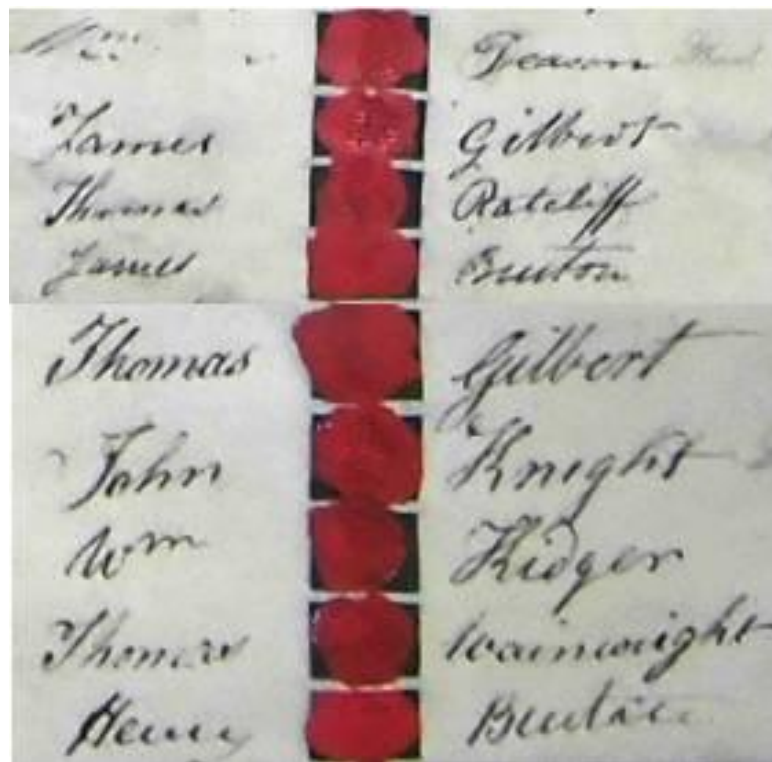 Wm Deacon
James Gilbert
Thomas Ratcliff
James Bruton
Thomas Gilbert
John Knight
Wm Kidger
Thomas Wainwright
Henry